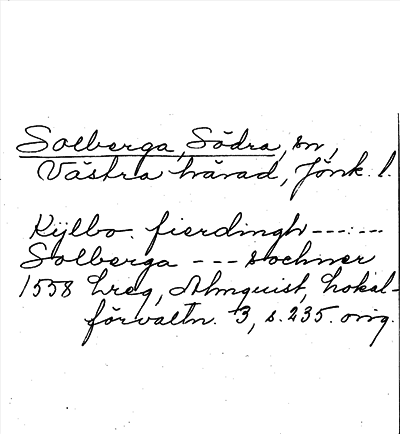 Solberga, Södra, sn,
Västra härad, Jönk. l.
Kÿlbo fierdingh --- ---
Solberga --- sochner
1558 Lreg, Almquist, Lokal-
förvaltn. 3, s. 235. orig.